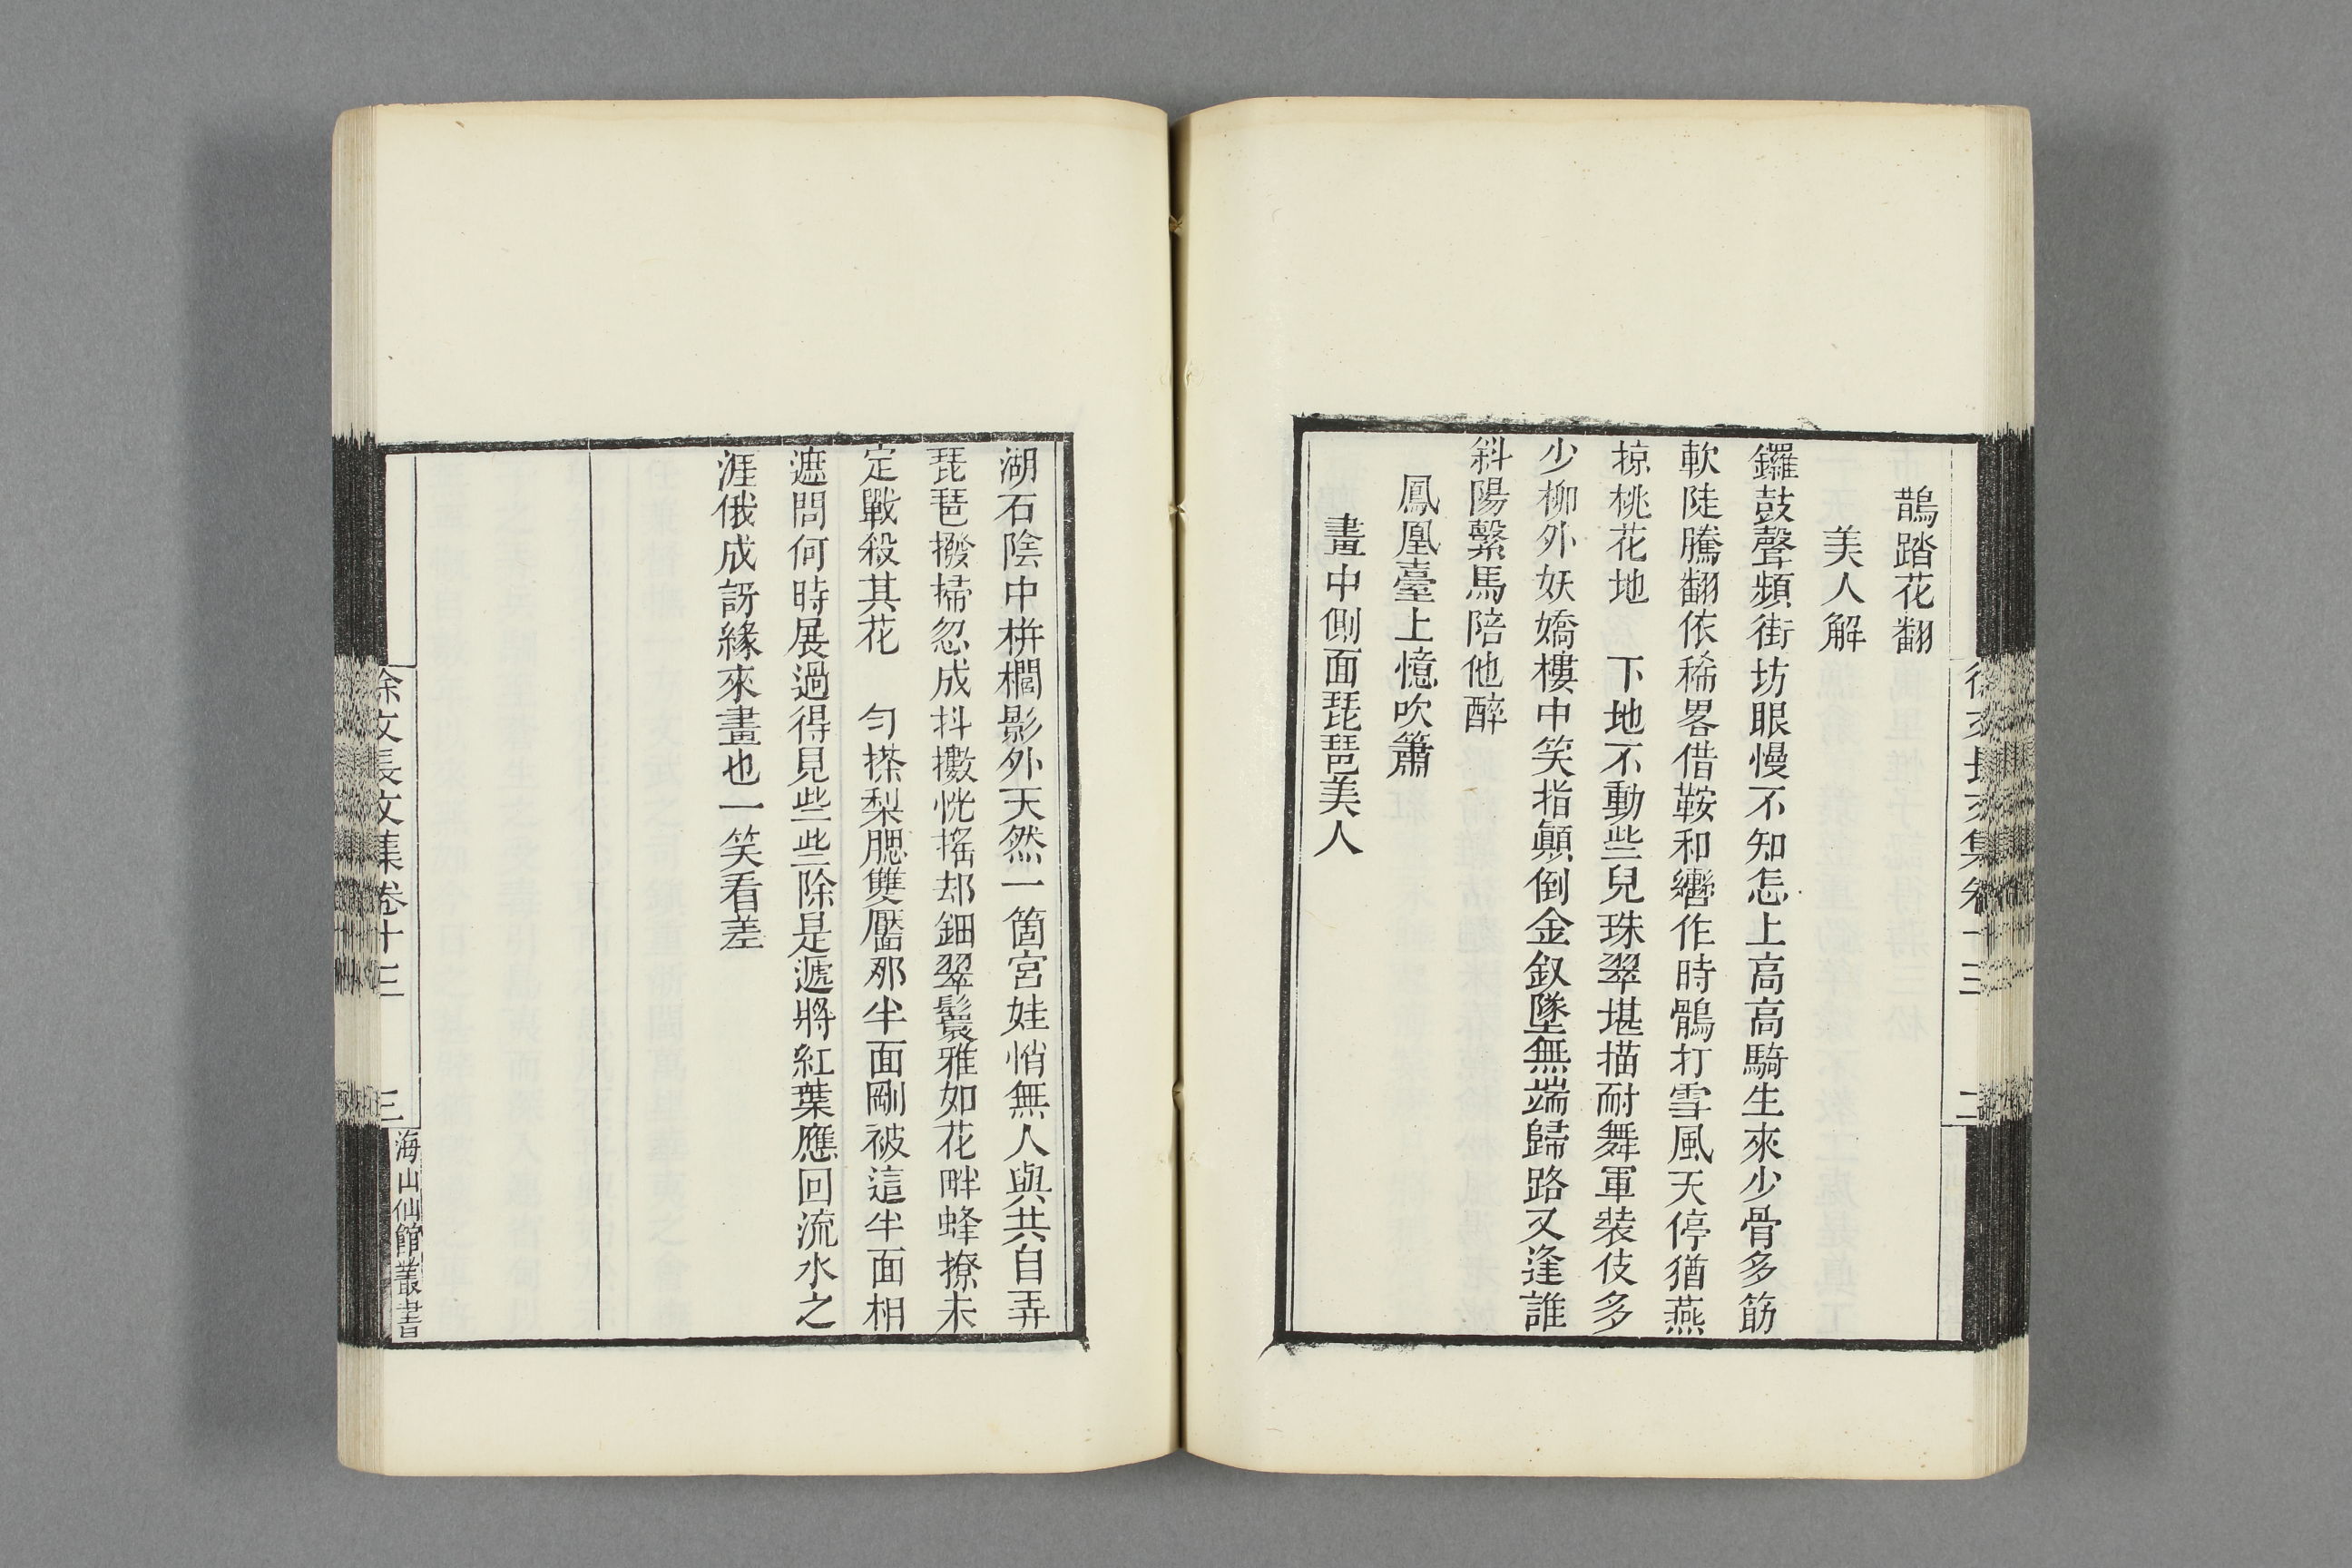 鵲踏花翻
美人解
鑼鼓聲頻街坊眼慢不知怎上高高騎生來少骨多筋
軟陡騰翻依稀畧借鞍和轡作時鶻打雪風天停猶燕
掠桃花地　下地不動些兒珠翠堪描耐舞軍裝伎多
少柳外妖嬌樓中笑指顛倒金釵墜無端歸路又逢誰
斜陽繫馬陪他醉
鳳凰臺上憶吹簫
畫中側面琵琶美人
湖石陰中栟櫚影外天然一箇宮娃悄無人與共自弄
琵琶撥掃忽成抖擻恍搖却鈿翠鬟雅如花畔蜂撩未
定戰殺其花　勻搽梨腮雙靨那半面剛被這半面相
遮問何時展過得見些些除是遞將紅葉應回流水之
涯俄成訝緣來畫也一笑看差
徐文長文集卷十三
三
海山仙館叢書